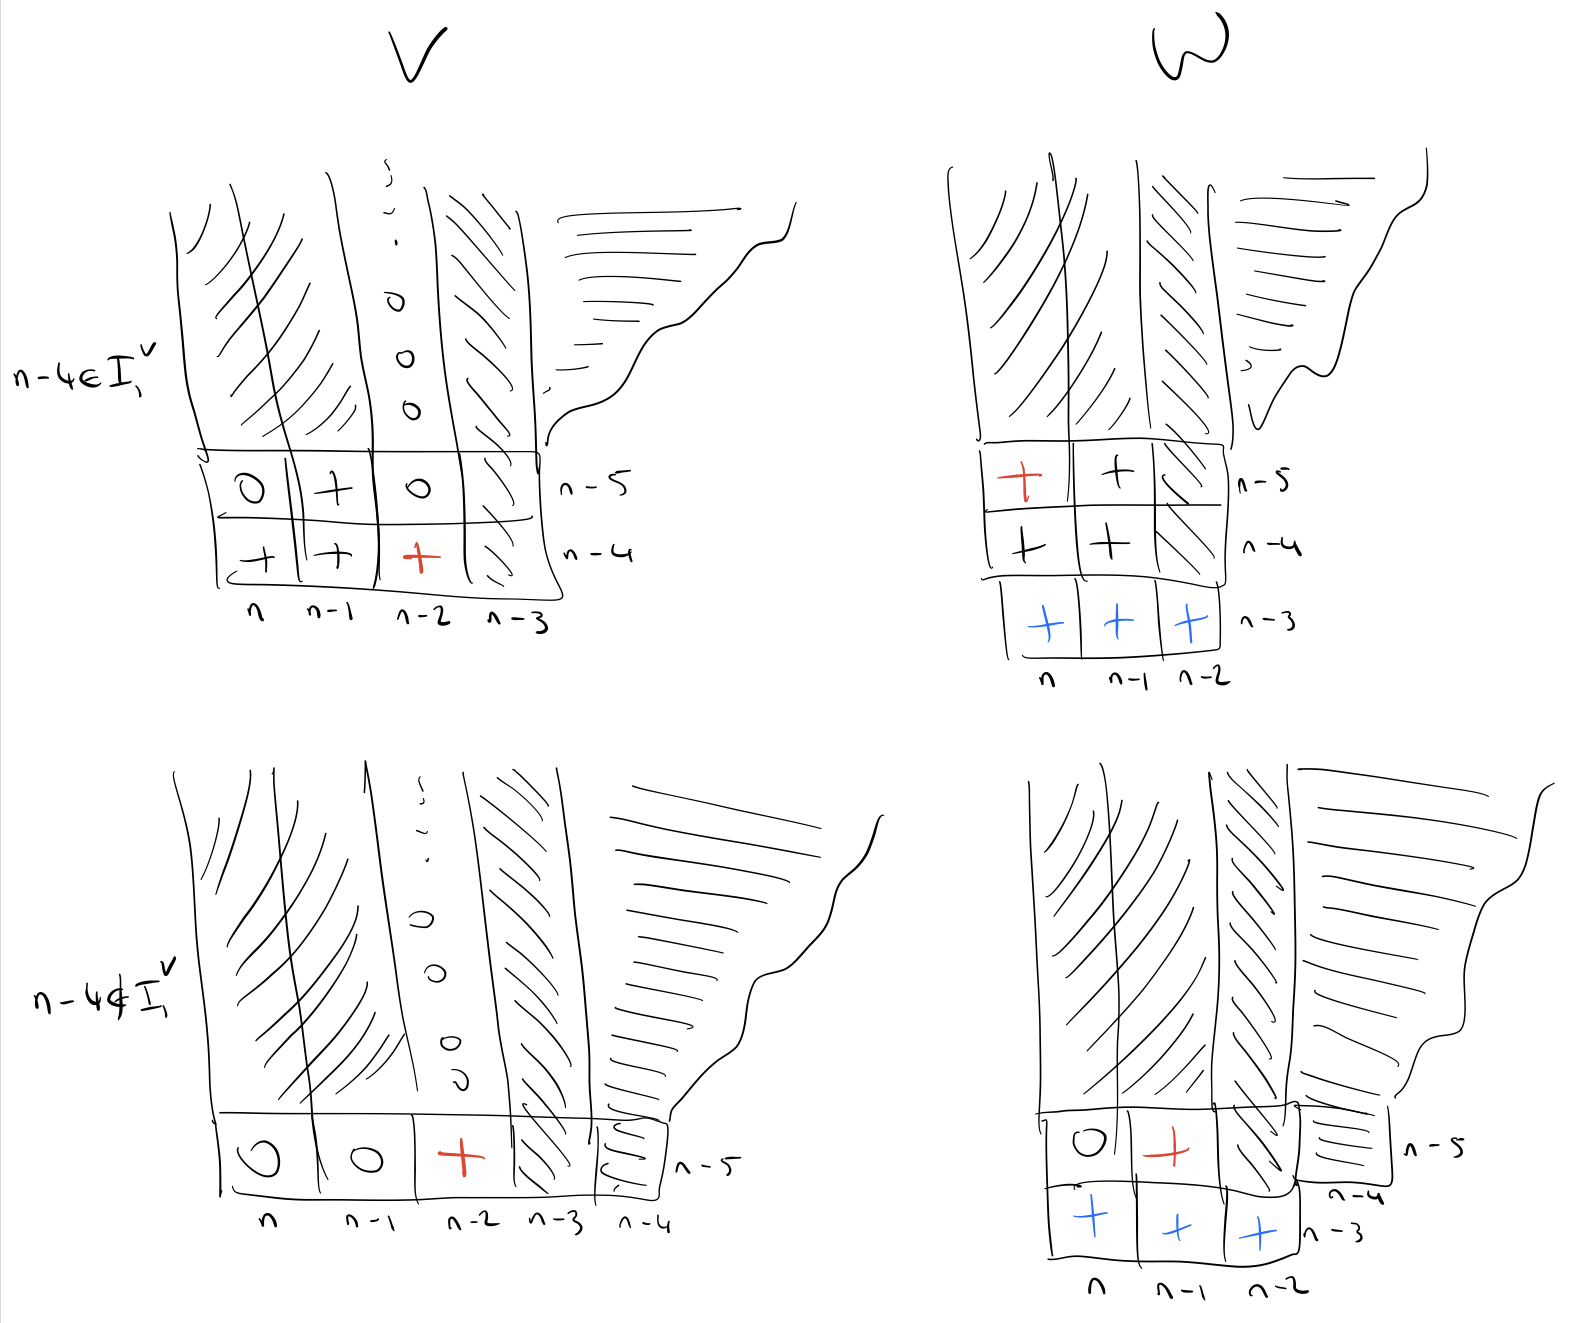 V W
n-4∈I₁ⱽ
O + O n-5
+ + + n-4
n n-1 n-2 n-3
+ + n-5
+ + n-4
+ + + n-3
n n-1 n-2
n-4∉I₁ⱽ
O O + n-5
n n-1 n-2 n-3 n-4
O + n-5
n-4
+ + + n-3
n n-1 n-2